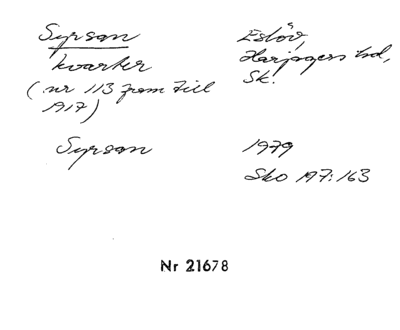 Syrsan
Eslöv,
Harjagers hd,
Sk.
kvarter
(nr 113 fram till
1917)
Syrsan
1979
Sko 197:163
Nr 21678